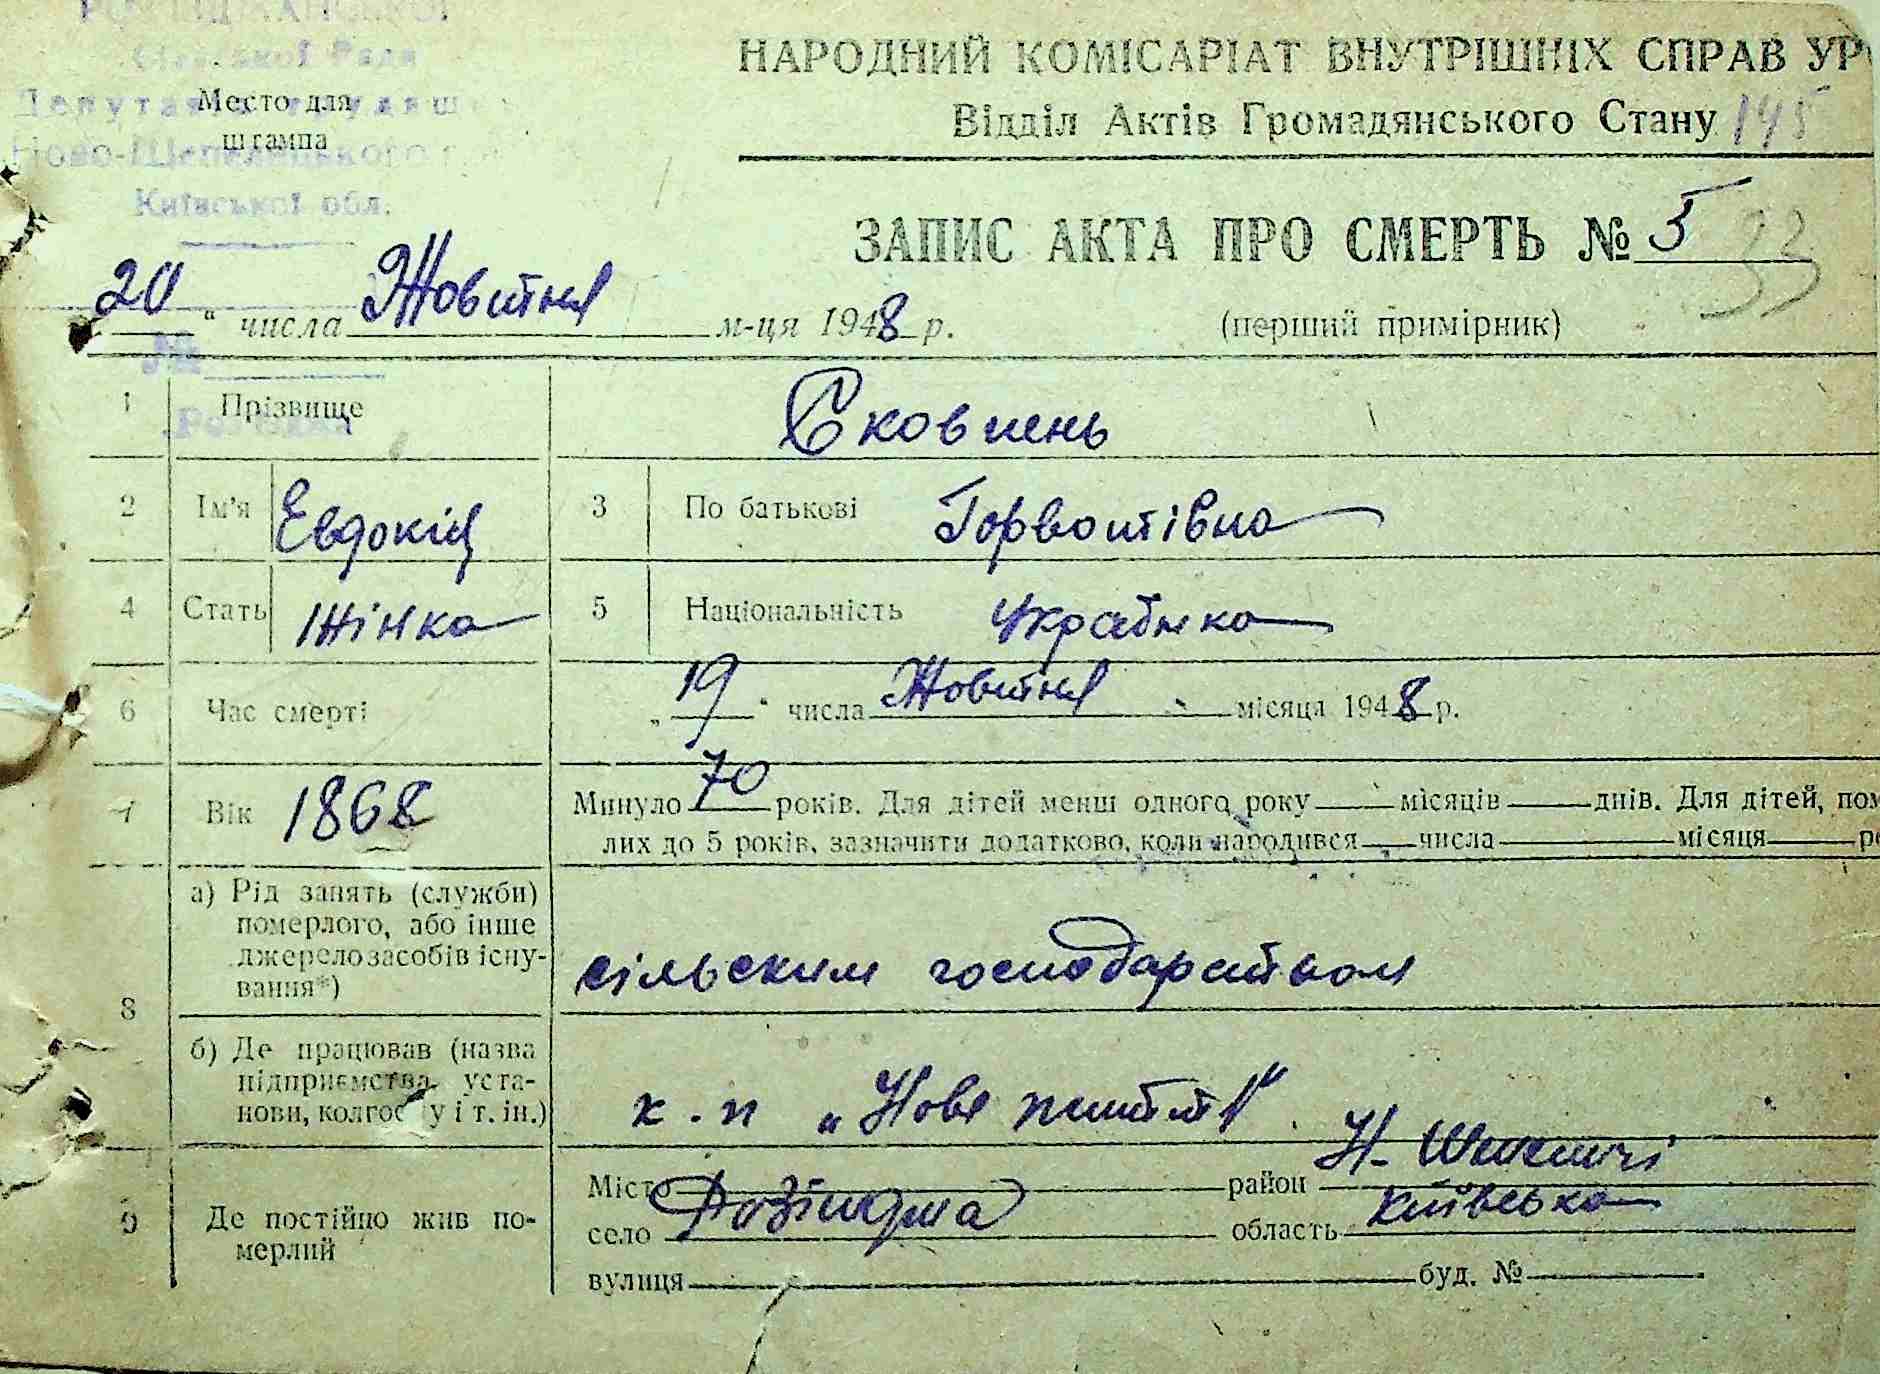 Сільської Ради
Депутатів трудящ
Место для
штампа
Ново-Шепелицького
Київської обл.
НАРОДНИЙ КОМІСАРІАТ ВНУТРІШНІХ СПРАВ УР
Відділ Актів Громадянського Стану 145
ЗАПИС АКТА ПРО СМЕРТЬ № 5 33
20 " числа Жовтня м-ця 1948 р.
(перший примірник)
№
1 Прізвище Сковпень
2 Ім'я Евдокія 3 По батькові
4 Стать Жінка 5 Національність Українка
6 Час смерті „19" числа Жовтня місяця 1948 р.
7 Вік 1868 Минуло 70 років. Для дітей менш одного року місяців днів. Для дітей, пом
лих до 5 років, зазначити додатково, коли народився числа місяця ро
8 а) Рід занять (служби)
померлого, або інше
джерело засобів існу-
вання*)
сільским господарством
б) Де працював (назва
підприємства, уста-
нови, колгоспу і т. ін.)
к-п „Нове життя"
9 Де постійно жив по-
мерлий
Місто район Н-
село область Київська
вулиця буд. №